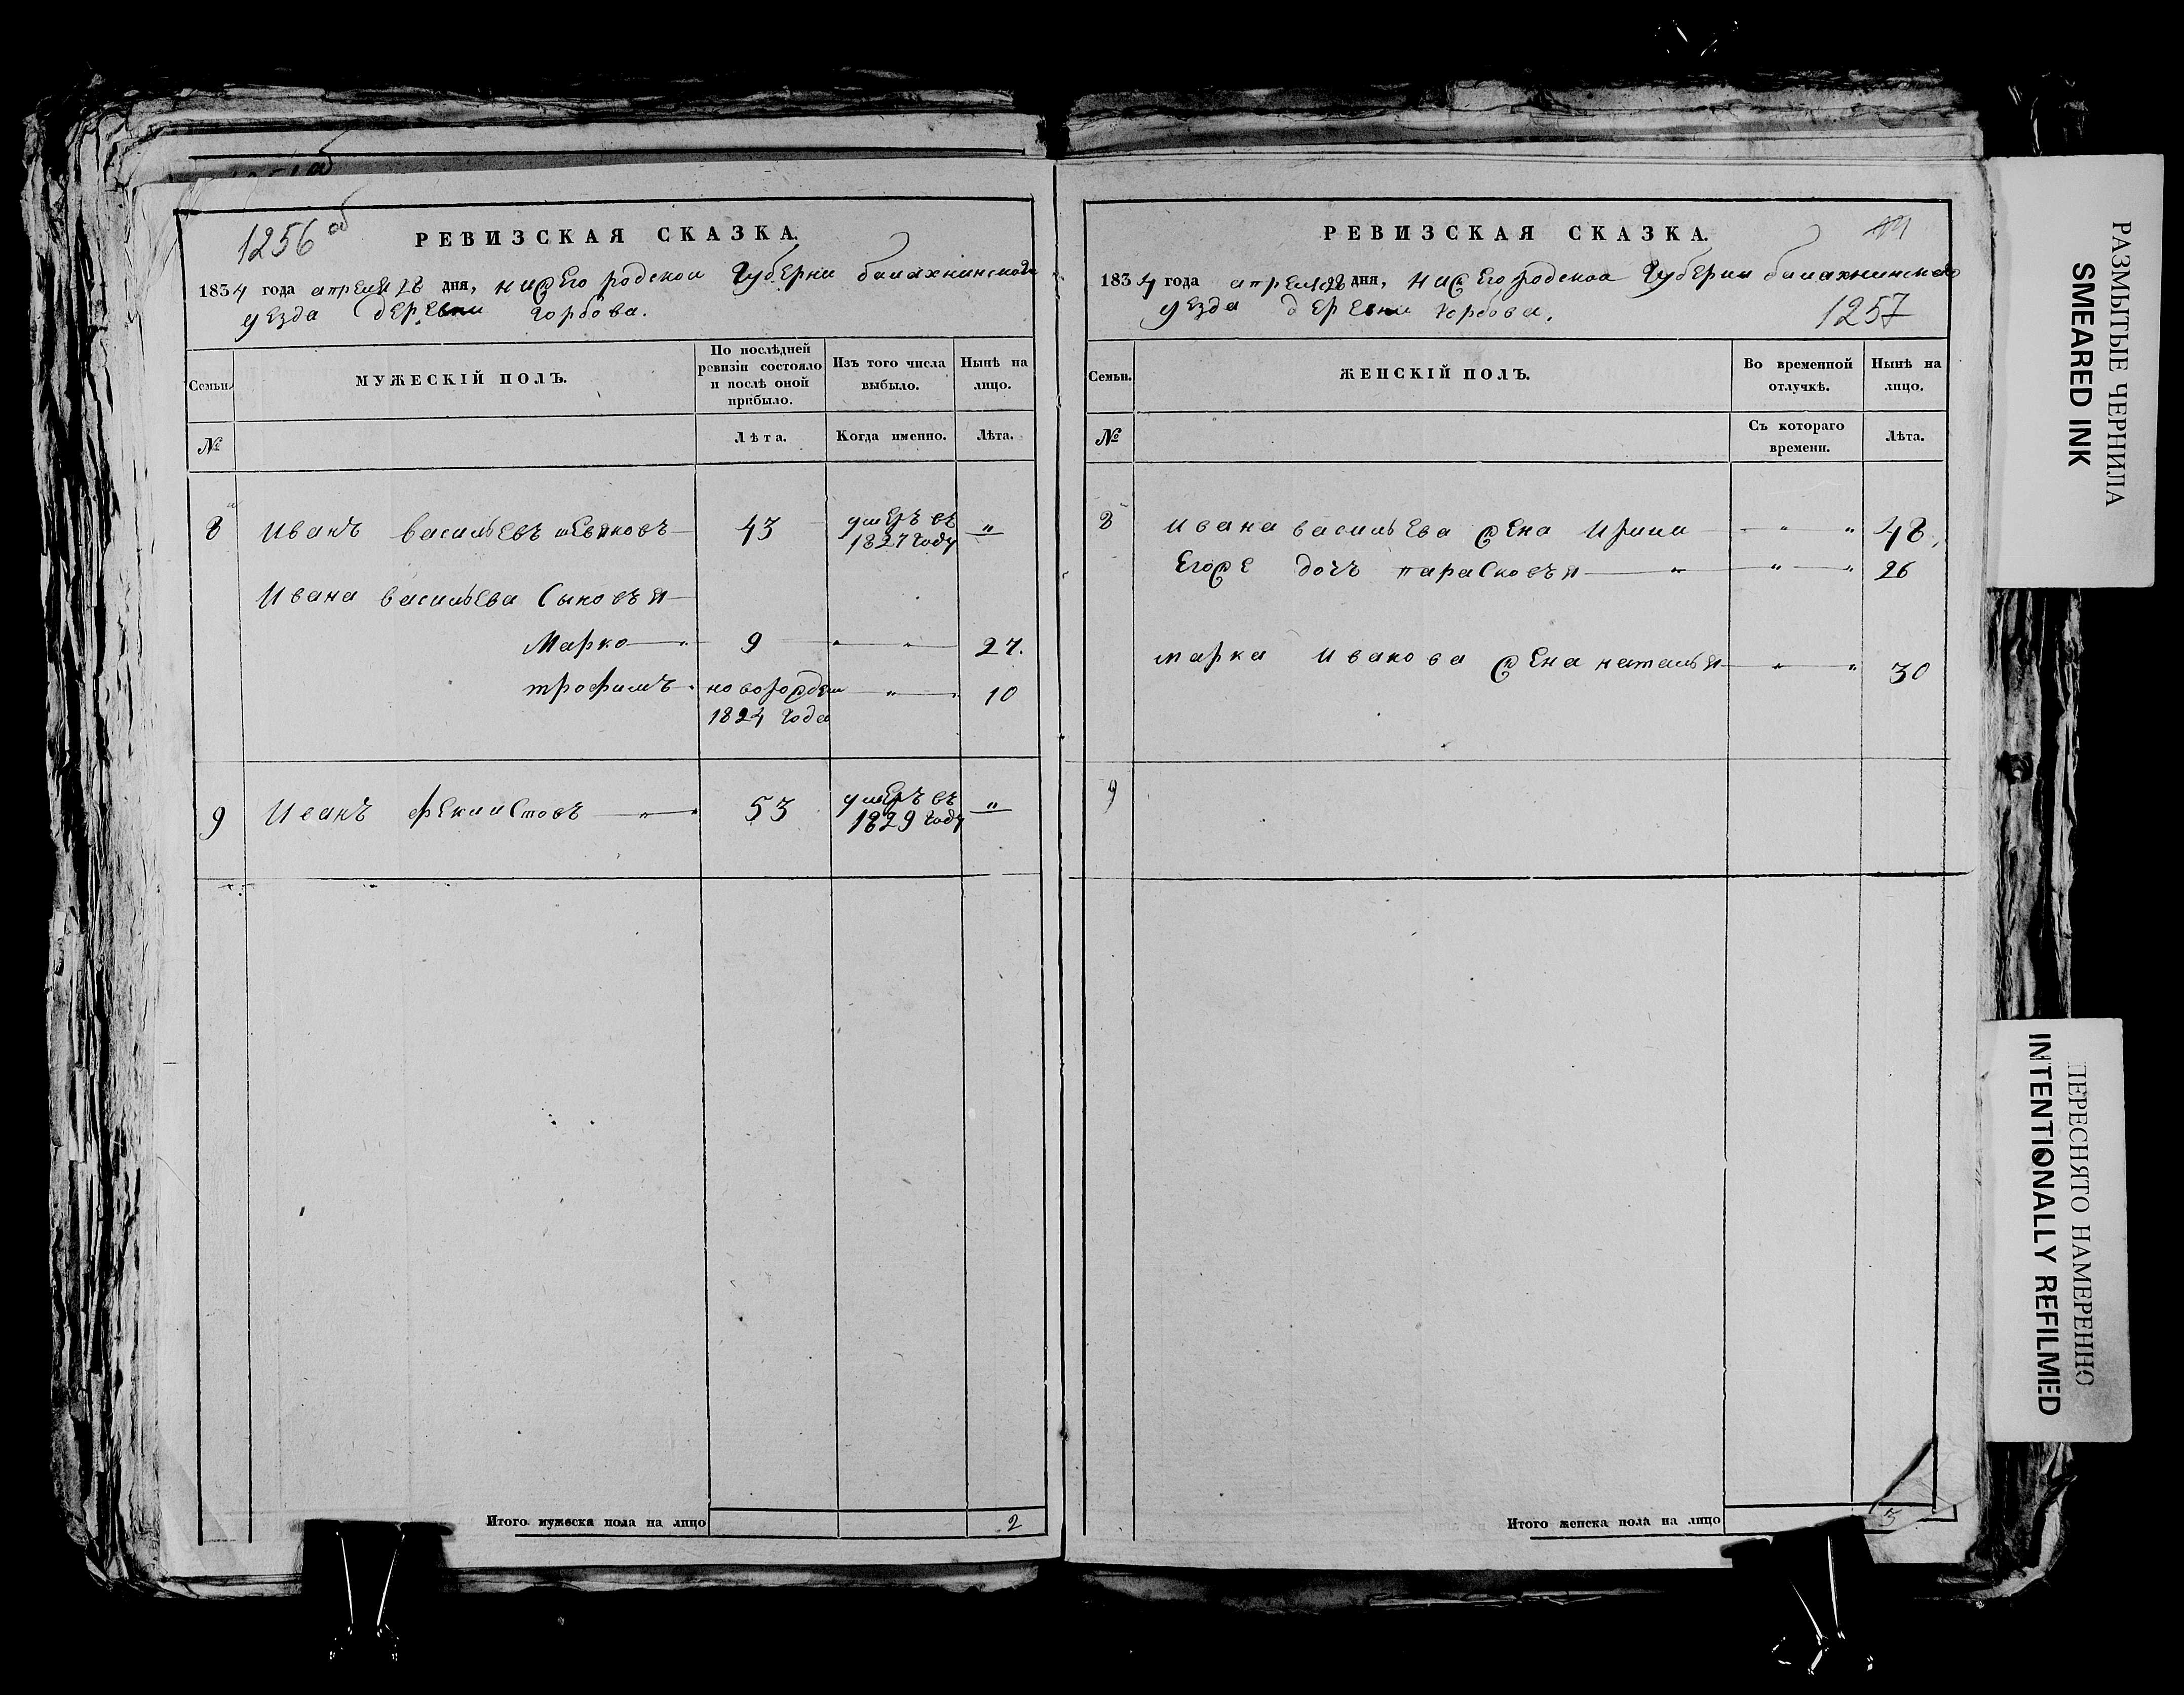 1256 об
РЕВИЗСКАЯ СКАЗКА.
1834 года апреля 28 дня, нижегородской губерни балахнинской
уезда деревни горбова.
Семьи.
МУЖЕСКІЙ ПОЛЪ.
По послѣдней ревизіи состояло и послѣ оной прибыло.
Изъ того числа выбыло.
Нынѣ на лицо.
№
Лѣта.
Когда именно.
Лѣта.
8 Иванъ васильевъ 43 умеръ въ "
1827 году
Ивана васильева сыновья
Марко " 9 " " 27.
трофимъ новорожден " 10
1824 года
9 Иванъ феклистовъ " 53 умеръ въ "
1829 году
Итого мужеска пола на лицо 2
РЕВИЗСКАЯ СКАЗКА.
1834 года апреля 28 дня, нижегородской губернии балахнинскаго
уезда деревни горбова.
1257
Семьи.
ЖЕНСКІЙ ПОЛЪ.
Во временной отлучкѣ.
Нынѣ на лицо.
№
Съ котораго времени.
Лѣта.
8 Ивана васильева жена Ирина " " 48
Егоже дочь парасковья " " " 26
марка Иванова жена наталья " " 30
9
Итого женска пола на лицо 3
РАЗМЫТЫЕ ЧЕРНИЛА
SMEARED INK
ПЕРЕСНЯТО НАМЕРЕННО
INTENTIONALLY REFILMED